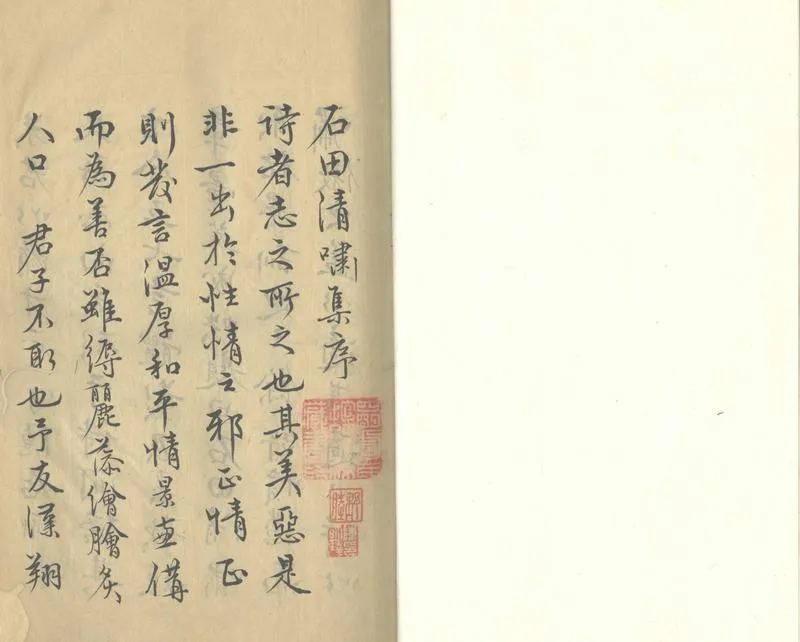 石田清嘯集序
诗者志之所之也其美惡是
非一出於性情之邪正情正
則發言溫厚和平情景兼備
而為善否雖縟麗藻繪膾炙
人口　君子不取也予友漢翔